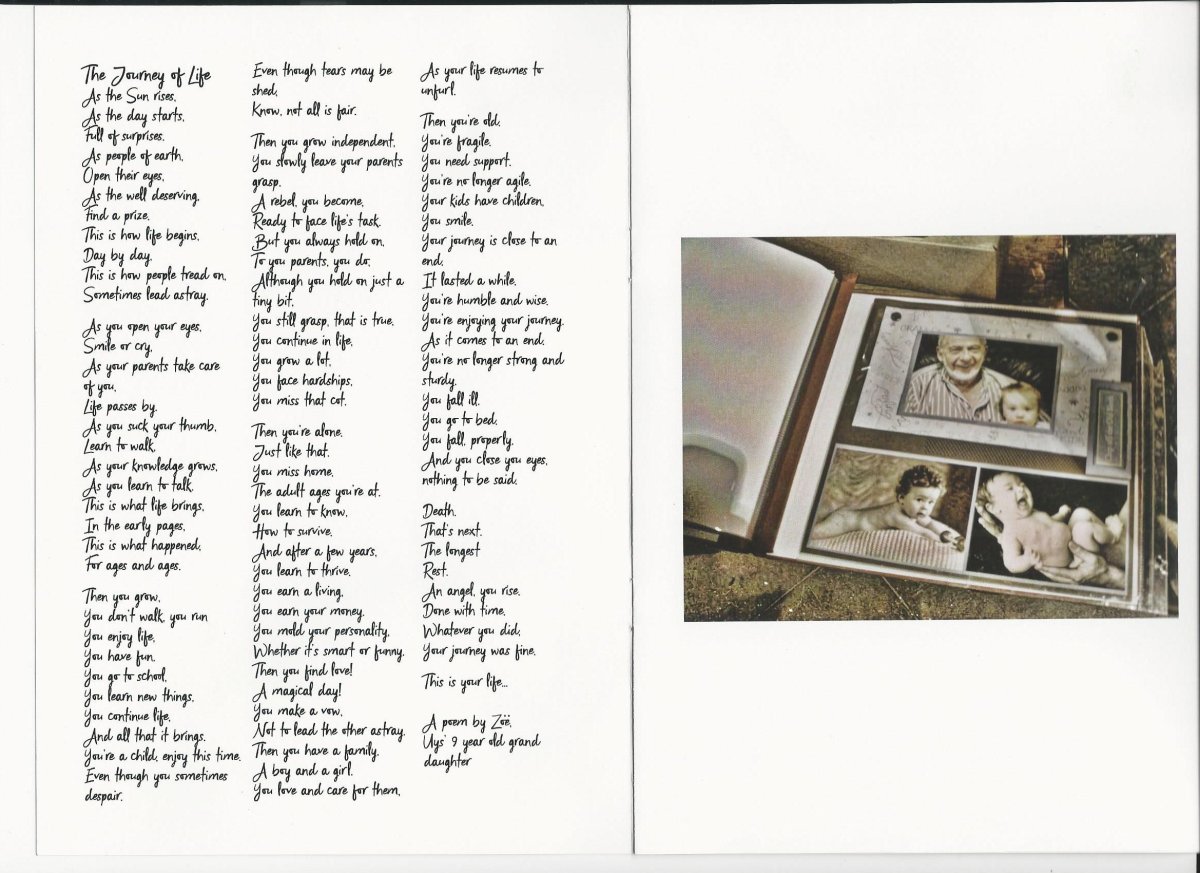 The Journey of Life
As the Sun rises,
As the day starts,
Full of surprises.
As people of earth,
Open their eyes,
As the well deserving,
Find a prize.
This is how life begins,
Day by day,
This is how people tread on,
Sometimes lead astray.
As you open your eyes,
Smile or cry,
As your parents take care
of you,
Life passes by.
As you suck your thumb,
Learn to walk,
As your knowledge grows,
As you learn to talk,
This is what life brings,
In the early pages,
This is what happened,
For ages and ages.
Then you grow,
You don't walk, you run
You enjoy life,
You have fun.
You go to school,
You learn new things,
You continue life,
And all that it brings.
You're a child, enjoy this time.
Even though you sometimes
despair,
Even though tears may be
shed,
Know, not all is fair.
Then you grow independent,
You slowly leave your parents
grasp.
A rebel, you become,
Ready to face life's task.
But you always hold on,
To you parents, you do,
Although you hold on just a
tiny bit,
You still grasp, that is true.
You continue in life,
You grow a lot,
You face hardships,
You miss that cot.
Then you're alone,
Just like that.
You miss home,
The adult ages you're at.
You learn to know,
How to survive,
And after a few years,
You learn to thrive.
You earn a living,
You earn your money,
You mold your personality,
Whether it's smart or funny.
Then you find love!
A magical day!
You make a vow,
Not to lead the other astray.
Then you have a family,
A boy and a girl.
You love and care for them,
As your life resumes to
unfurl.
Then you're old,
You're fragile.
You need support.
You're no longer agile.
Your kids have children,
You smile.
Your journey is close to an
end,
It lasted a while.
You're humble and wise,
You're enjoying your journey.
As it comes to an end,
You're no longer strong and
sturdy.
You fall ill,
You go to bed.
You fall, properly,
And you close you eyes,
nothing to be said.
Death.
That's next.
The longest
Rest.
An angel, you rise,
Done with time.
Whatever you did,
Your journey was fine.
This is your life...
A poem by Zoë,
Uys' 9 year old grand
daughter